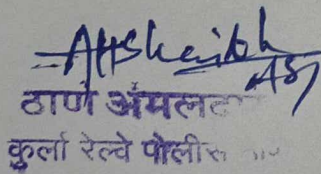 AHShaikh
ASI
ठाणे अंमलद
कुर्ला रेल्वे पोलीस